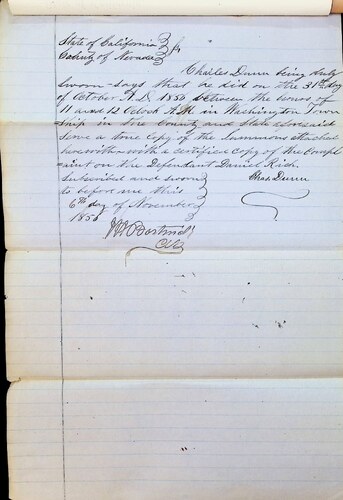 State of California } ss
County of Nevada }
Charles Dunn being duly
sworn says that he did on the 31st day
of October A.D. 1856 between the hours of
11 and 12 Oclock A.M. in Washington Town
ship in the County and State aforesaid
serve a true Copy of the Summons attached
herewith with a certified Copy of the Compl
aint on the Defendant Daniel Rich.
Subscribed and sworn } Chas Dunn
to before me this
6th day of November
1856